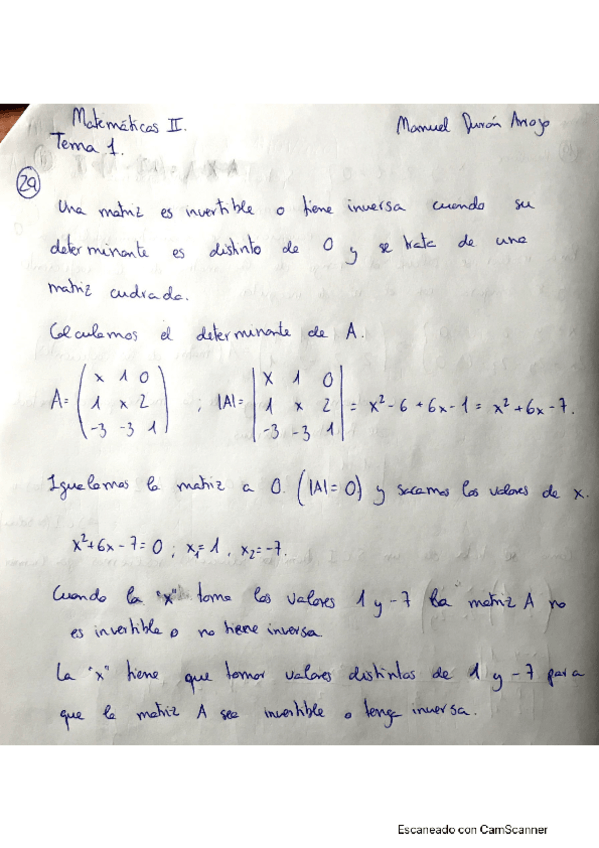 Matemáticas II. Manuel Durán Arroyo
Tema 1.
29
Una matriz es invertible o tiene inversa cuando su
determinante es distinto de 0 y se trata de una
matriz cuadrada.
Calculamos el determinante de A.
A = ( x 1 0 / 1 x 2 / -3 -3 1 ) ; |A| = | x 1 0 / 1 x 2 / -3 -3 1 | = x² - 6 + 6x - 1 = x² + 6x - 7.
Igualamos la matriz a 0. (|A| = 0) y sacamos los valores de x.
x² + 6x - 7 = 0 ; x₁ = 1 , x₂ = -7.
Cuando la "x" tome los valores 1 y -7 la matriz A no
es invertible o no tiene inversa.
La "x" tiene que tomar valores distintos de 1 y -7 para
que la matriz A sea invertible o tenga inversa.
Escaneado con CamScanner